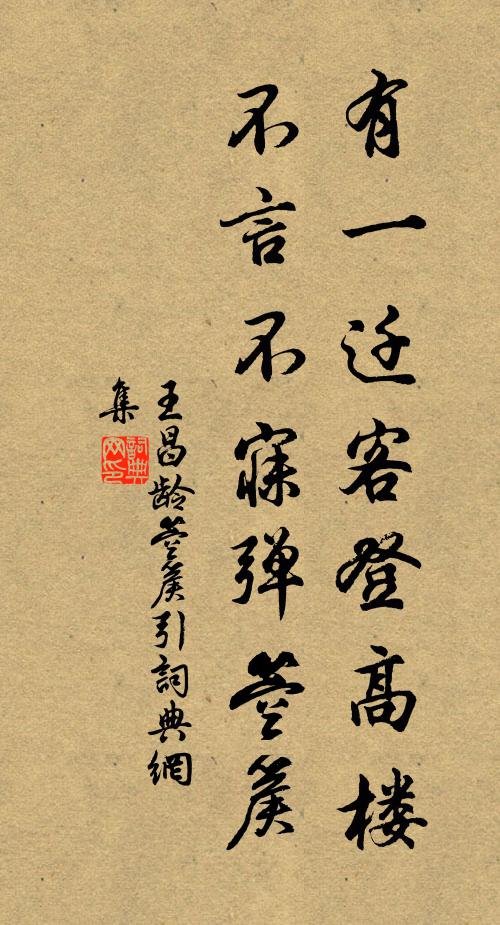 有一迁客登高楼
不言不寐弹箜篌
王昌龄箜篌引詞典網
集
詞典网印